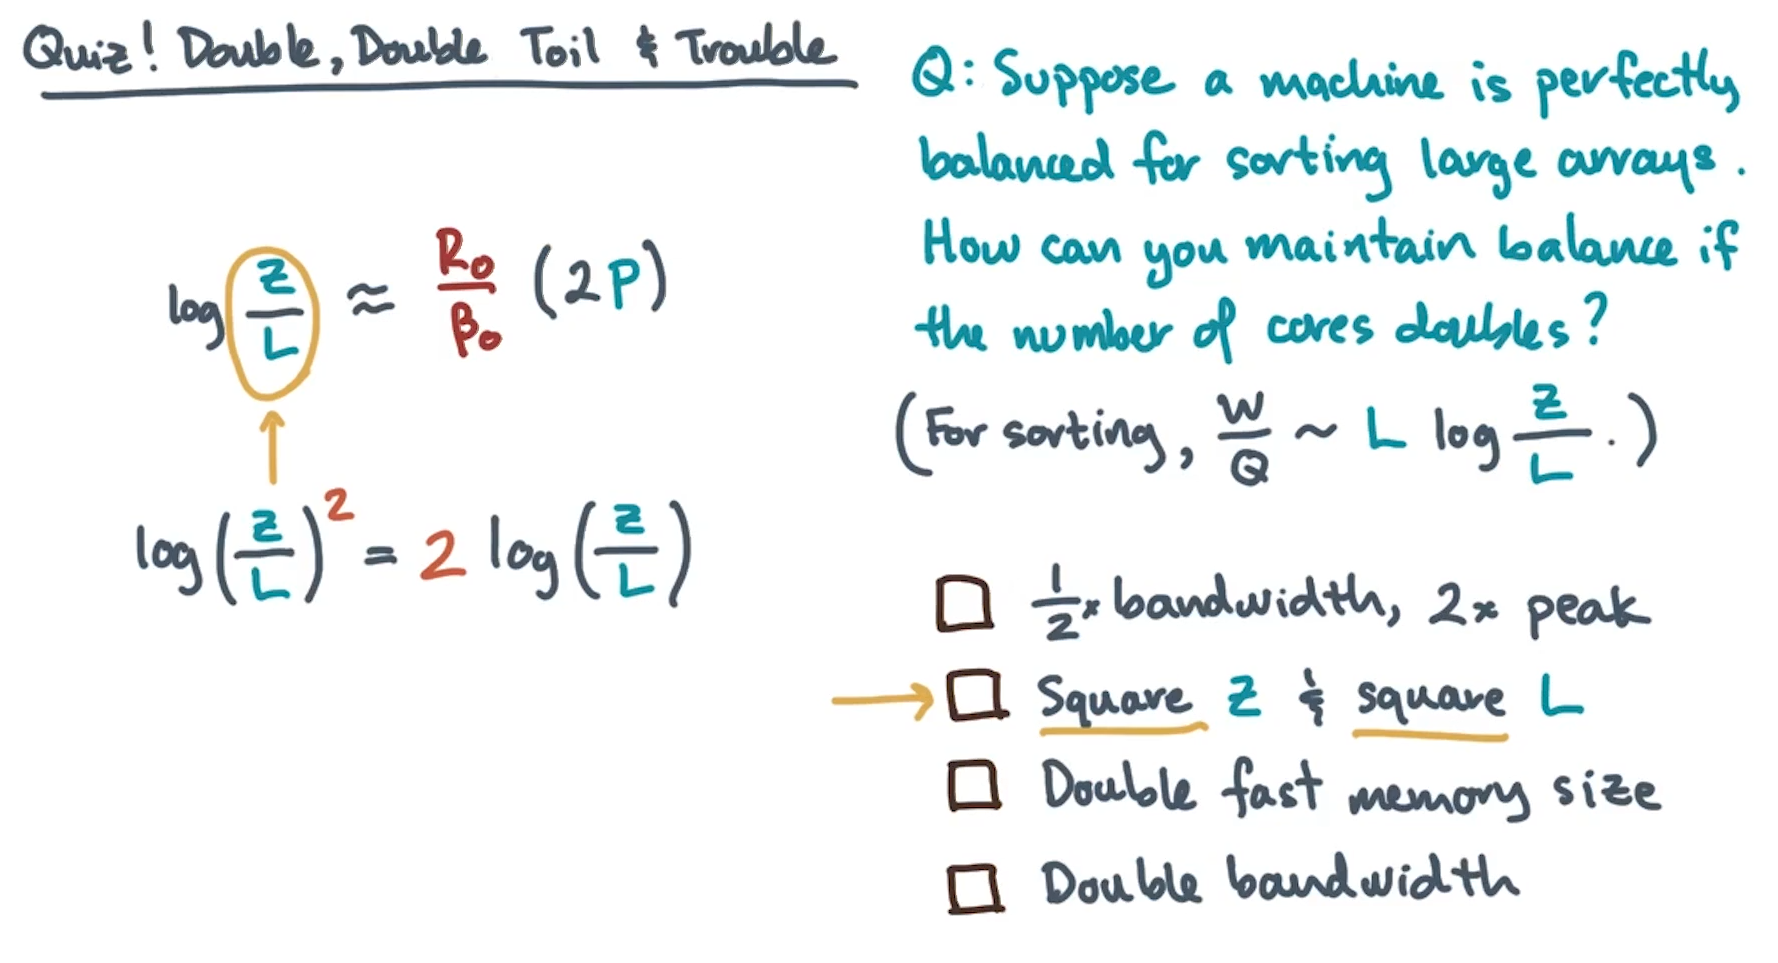 Quiz! Double, Double Toil & Trouble
log Z/L ≈ R₀/β₀ (2P)
log(Z/L)² = 2 log(Z/L)
Q: Suppose a machine is perfectly
balanced for sorting large arrays.
How can you maintain balance if
the number of cores doubles?
(For sorting, W/Q ~ L log Z/L.)
1/2x bandwidth, 2x peak
→ Square Z & square L
Double fast memory size
Double bandwidth